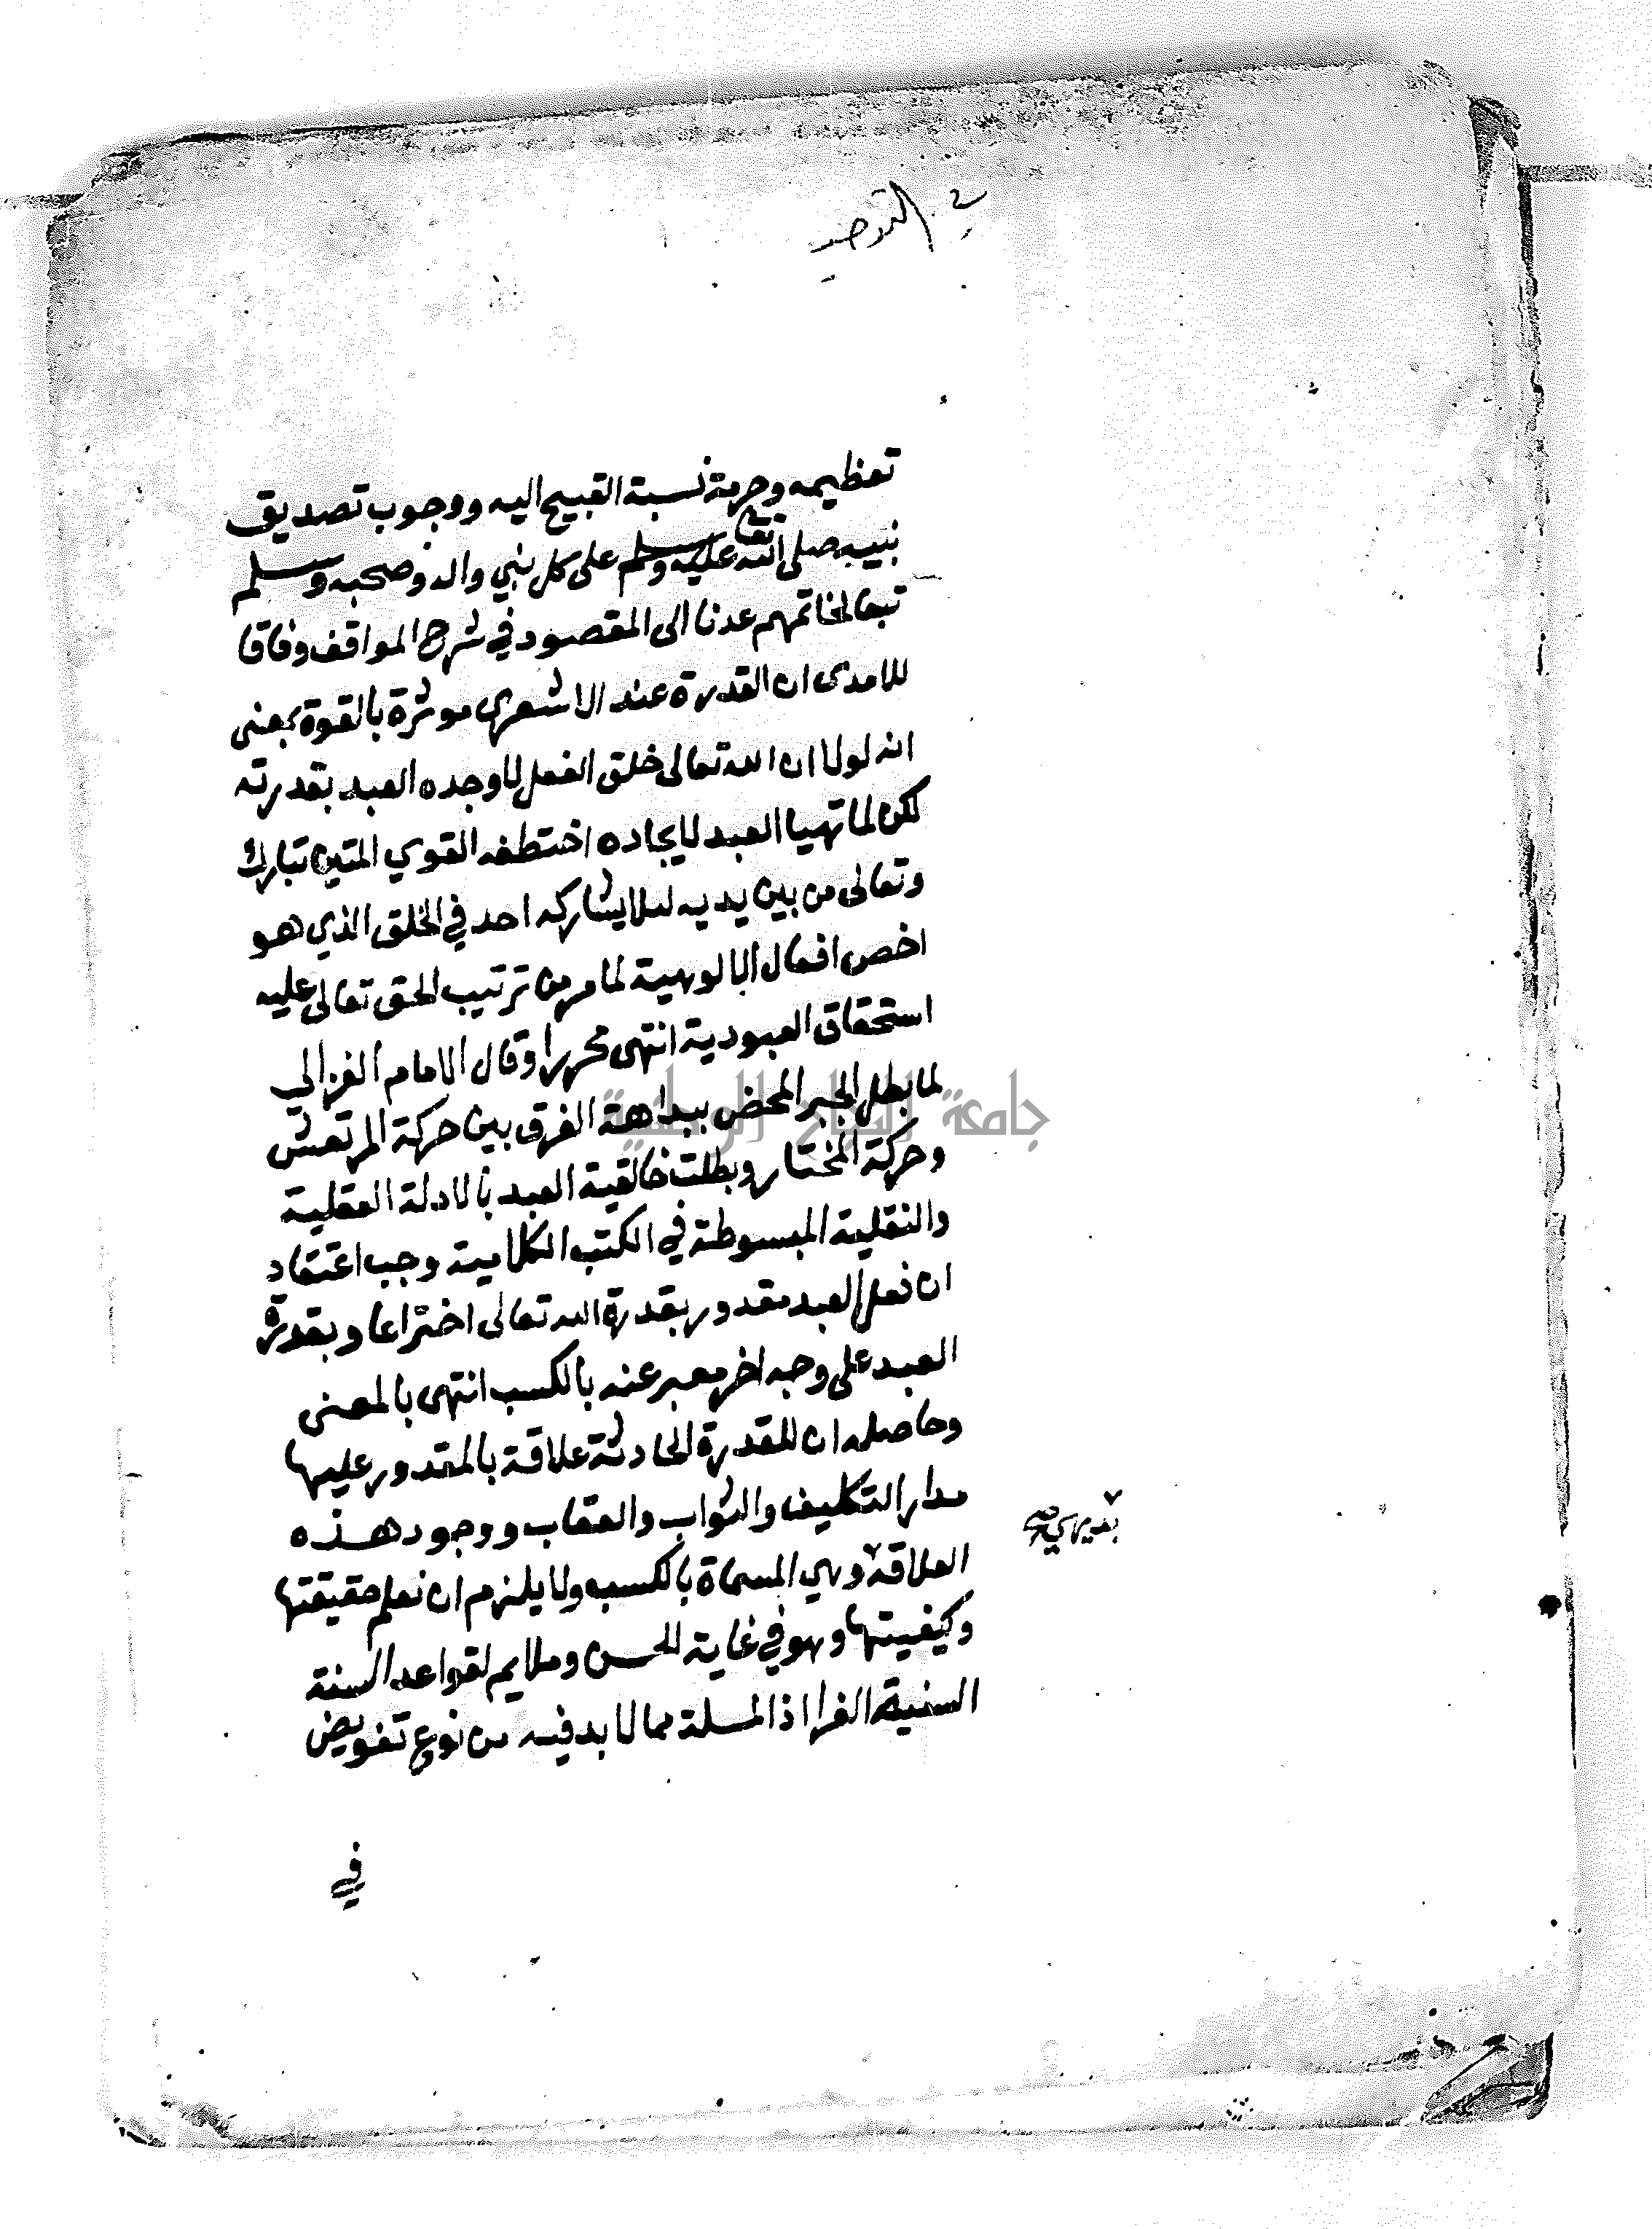 في التوحيد
تعظيمه وحرمة نسبة القبيح اليه ووجوب تصديق
نبيه صلى الله تعا عليه وسلم على كل نبي واله وصحبه وسلم
تبعا لخاتمهم عدنا الى المقصود في شرح المواقف وفاقا
للامدى ان القدرة عند الاشعرى موثرة بالقوة بمعنى
انه لولا ان الله تعالى خلق الفعل لاوجده العبد بقدرته
لكن لما تهيا العبد لايجاده اختطفه القوي المتين تبارك
وتعالى من بين يديه لىلا يشاركه احد في الخلق الذي هو
اخص افعال الالوهية لما مر من ترتيب الحق تعالى عليه
استحقاق العبودية انتهى محررا وقال الامام الغزالي
لما بطل الجبر المحض ببداهة الفرق بين حركة المرتعش
وحركة المختار وبطلت خالقية العبد بالادلة العقلية
والنقلية المبسوطة في الكتب الكلامية وجب اعتقاد
ان فعل العبد مقدور بقدرة الله تعالى اختراعا وبقدرة
العبد على وجه اخر معبر عنه بالكسب انتهى بالمعنى
وحاصله ان للقدرة الحادثة علاقة بالمقدور عليها
مدار التكليف والثواب والعقاب ووجود هذه
العلاقة وهي المسماة بالكسب ولا يلزم ان نعلم حقيقتها
بديهي صح
وكيفيتها وهو في غاية الحسن وملايم لقواعد السنة
السنية الغرا اذ المسلة مما لا بد فيه من نوع تفويض
في
جامعة النجاح الوطنية